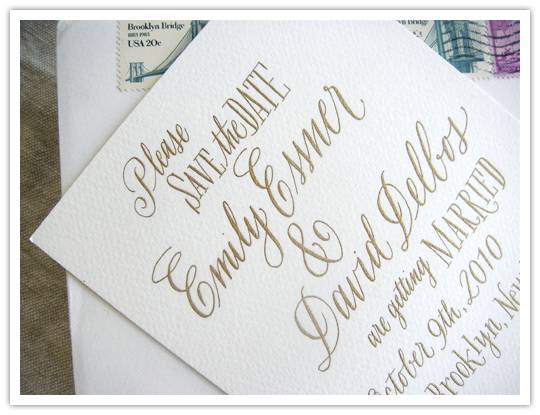 Brooklyn Bridge
1883-1983
USA 20c
Please
SAVE the DATE
Emily Essner
&
David Delbos
are getting MARRIED
October 9th, 2010
Brooklyn, New